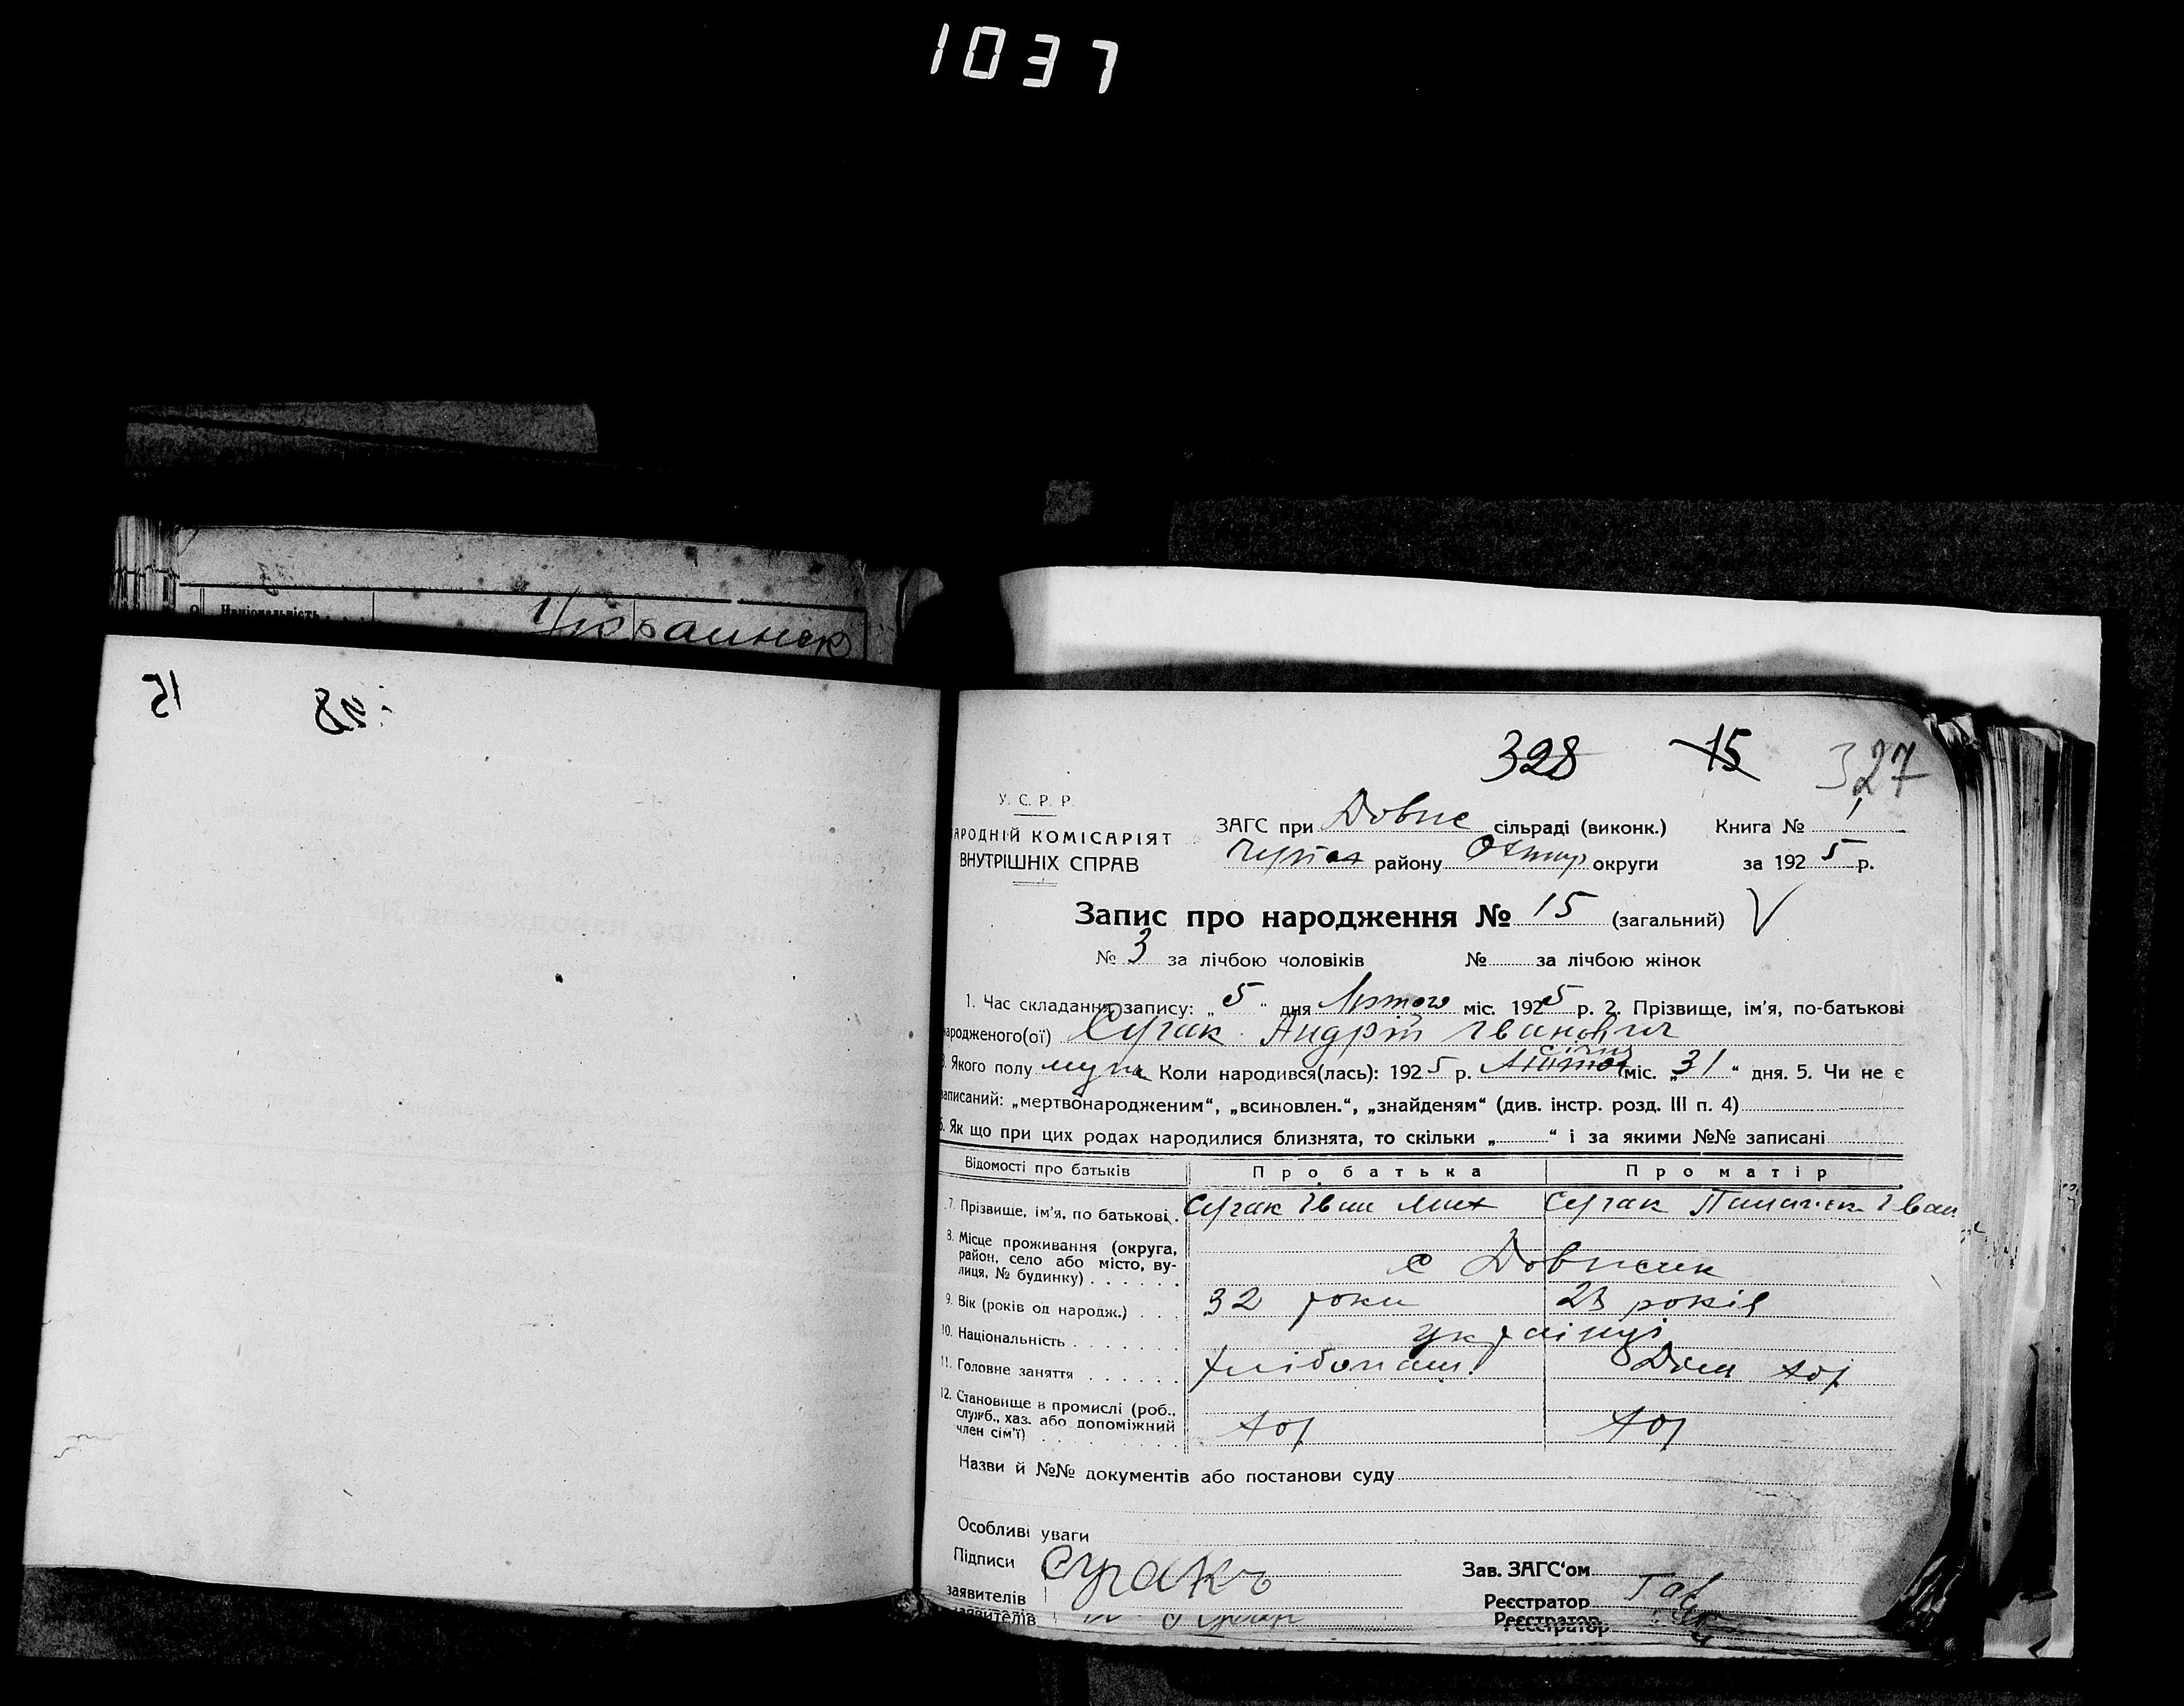 1037
Національність
Украинск
328 15 327
У. С. Р. Р.
АРОДНІЙ КОМІСАРІЯТ
ВНУТРІШНІХ СПРАВ
ЗАГС при Довпе сільраді (виконк.) Книга № 1
району Охтир округи за 1925 р.
Запис про народження № 15 (загальний)
№ 3 за лічбою чоловіків № за лічбою жінок
1. Час складання запису: „5“ дня Лютого міс. 1925 р. 2. Прізвище, ім'я, по-батькові
народженого(ої) Сугак Андрій Іванович
3. Якого полу муж Коли народився(лась): 1925 р. січня міс. „31“ дня. 5. Чи не є
записаний: „мертвонародженим“, „всиновлен.“, „знайденям“ (див. інстр. розд. III п. 4)
6. Як що при цих родах народилися близнята, то скільки „ “ і за якими №№ записані
Відомості про батьків Про батька Про матір
7. Прізвище, ім'я, по батькові. Сугак Іван Мих Сугак Іван
8. Місце проживання (округа,
район, село або місто, ву-
лиця, № будинку) . . . . . .
с
9. Вік (років од народж.) . . . 32 роки 23 років
10. Національність . . . . . . . українці
11. Головне заняття . . . . . . хлібопаш. Дом хоз
12. Становище в промислі (роб.,
служб., хаз. або допоміжний
член сім'ї) . . . . . . . . .
хоз хоз
Назви й №№ документів або постанови суду
Особливі уваги
Підписи Сугакъ Зав. ЗАГС'ом
заявителів Реєстратор
заявителів Реєстратор
Реєстратор